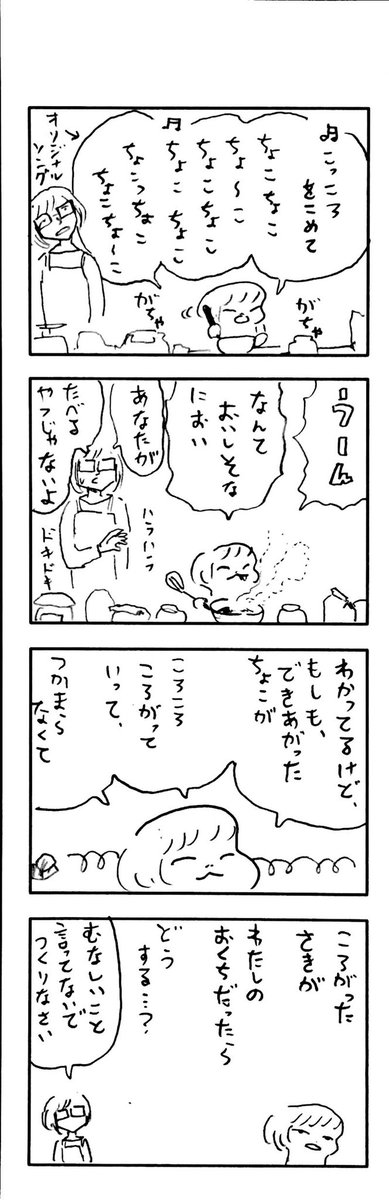 ♬こっころ
をこめて
ちょこちょこ
ちょ〜こ
ちょこちょこ
♬ちょこちょこ
ちょこっちょこ
ちょこちょ〜こ
オリジナル
ソング
がちゃ
がちゃ
うーん
なんて
おいしそな
におい
あなたが
たべる
やつじゃ
ないよ
ハラハラ
ドキドキ
わかってるけど、
もしも、
できあがった
ちょこが
ころころ
ころがって
いって、
つかまら
なくて
ころがった
さきが
わたしの
おくちだったら
どう
する…?
むなしいこと
言ってないで
つくりなさい